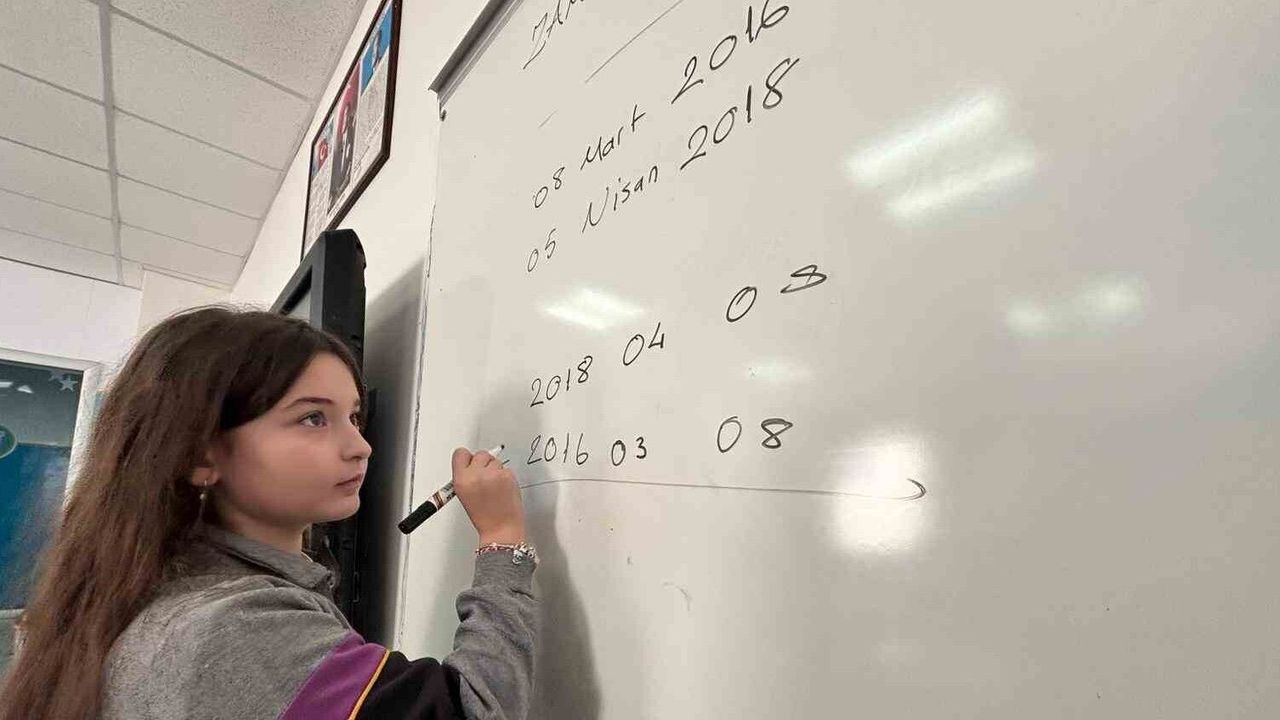 08 Mart 2016
05 Nisan 2018
2018 04 08
- 2016 03 08